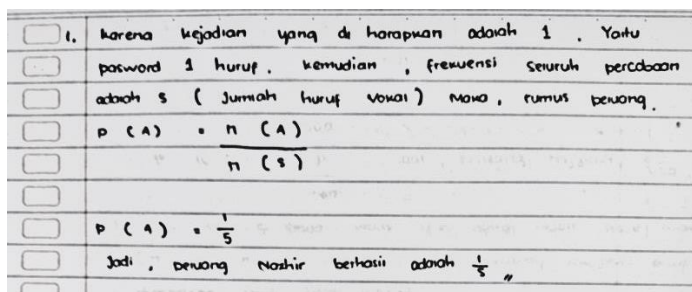 1. karena kejadian yang di harapkan adalah 1. Yaitu
pasword 1 huruf. kemudian, frekuensi seluruh percobaan
adalah 5 (Jumlah huruf vokal) Maka, rumus peluang.
P (A) = n (A)
n (s)
P (A) = 1/5
Jadi, peluang Nashir berhasil adalah 1/5 "